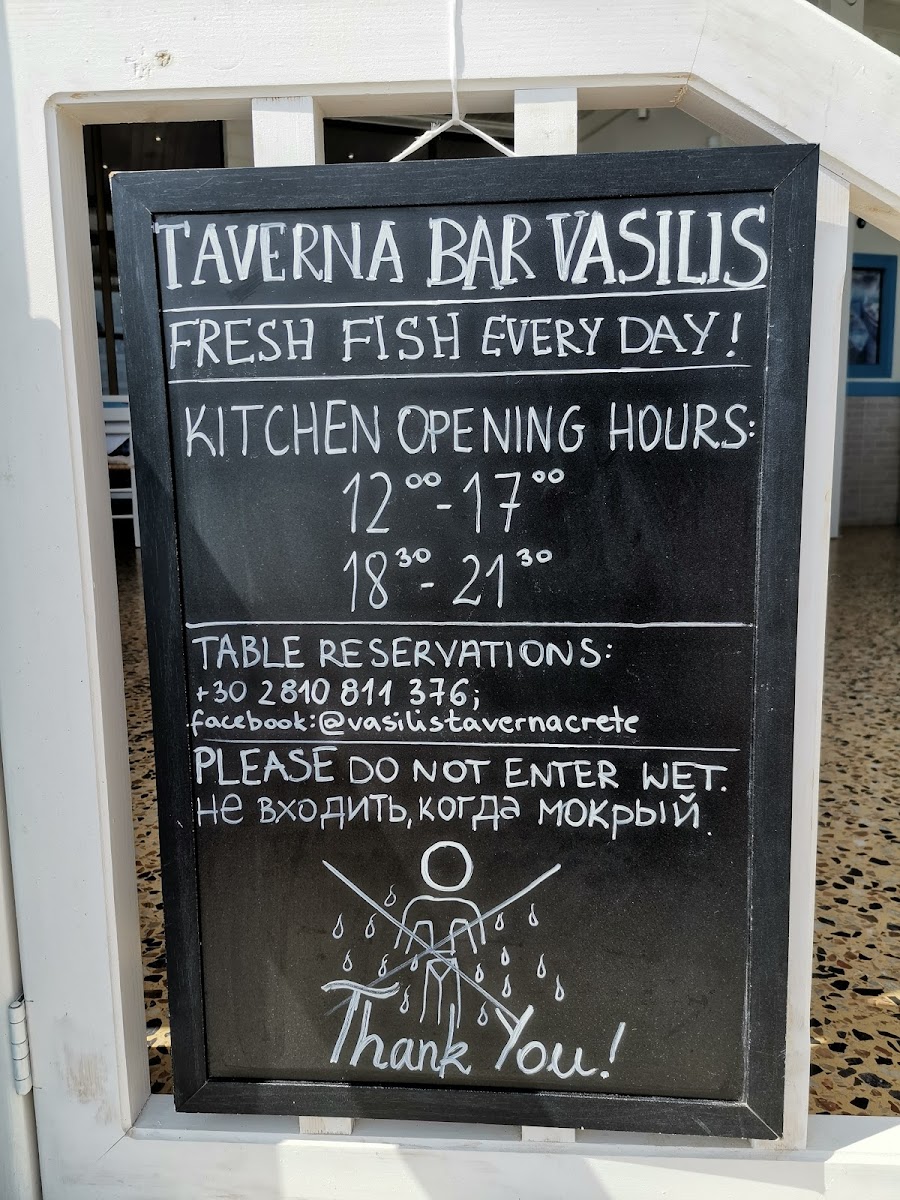 TAVERNA BAR VASILIS
FRESH FISH EVERY DAY!
KITCHEN OPENING HOURS:
12⁰⁰-17⁰⁰
18³⁰-21³⁰
TABLE RESERVATIONS:
+30 2810 811 376;
facebook:@vasilistavernacrete
PLEASE DO NOT ENTER WET.
не входить, когда мокрый.
Thank You!